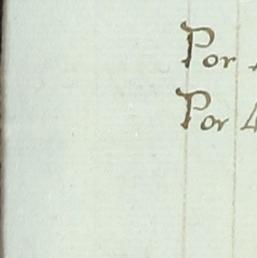 Por
Por 4